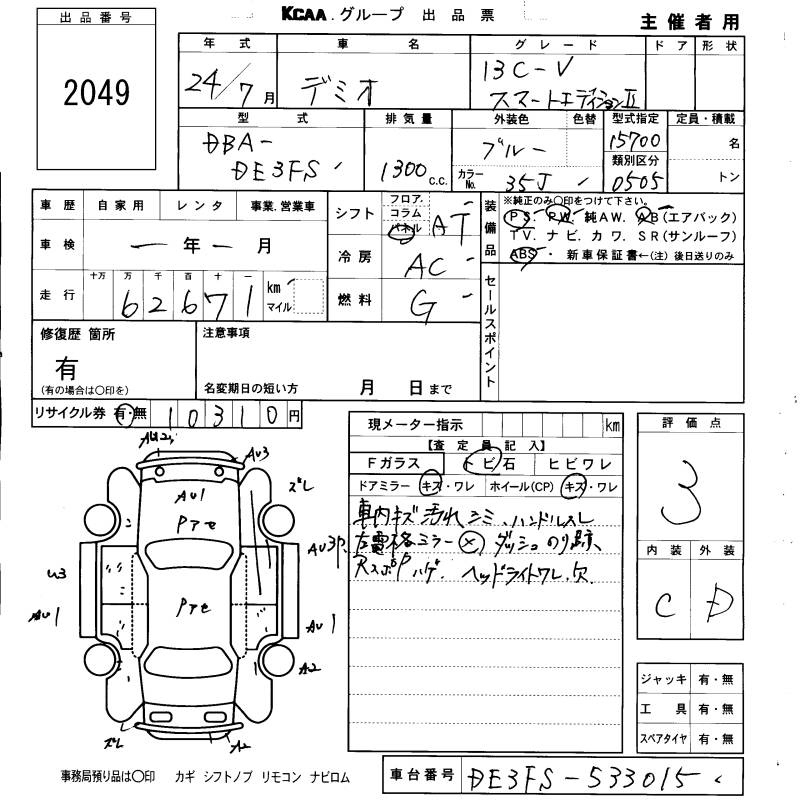 出品番号 KCAA.グループ 出品票 主催者用
2049
年式 車名 グレード ドア 形状
24/7月 デミオ 13C-V
スマートエディションII
型式 排気量 外装色 色替 型式指定 定員・積載
DBA- ブルー 15700 名
類別区分
DE3FS 1300c.c. カラーNo. 35J 0505 トン
車歴 自家用 レンタ 事業.営業車
シフト フロア. コラム パネル AT
装備品 ※純正のみ○印をつけて下さい。
PS. PW. 純AW. AB(エアバック)
TV. ナビ. カワ. SR(サンルーフ)
ABS・ 新車保証書←(注)後日送りのみ
車検 ー年ー月
冷房 AC
走行 十万 万 千 百 十 一
62671 km マイル
燃料 G
セールスポイント
修復歴 箇所 注意事項
有
(有の場合は○印を) 名変期日の短い方 月 日まで
リサイクル券 有・無 10310円
現メーター指示 km
【査定員記入】
Fガラス トビ石 ヒビワレ
ドアミラー キズ・ワレ ホイール(CP) キズ・ワレ
車内キズ 汚れ シミ、ハンドルスレ
左電格ミラー× ダッシュ のり跡、
RスポPハゲ. ヘッドライトワレ.欠
評価点
3
内装 外装
C D
AU2 AU3
AU1 ズレ
Pアセ
U3 AU3P
Pアセ
AU1 AU1
A2
ズレ A2
ジャッキ 有・無
工具 有・無
スペアタイヤ 有・無
事務局預り品は○印 カギ シフトノブ リモコン ナビロム
車台番号 DE3FS-533015